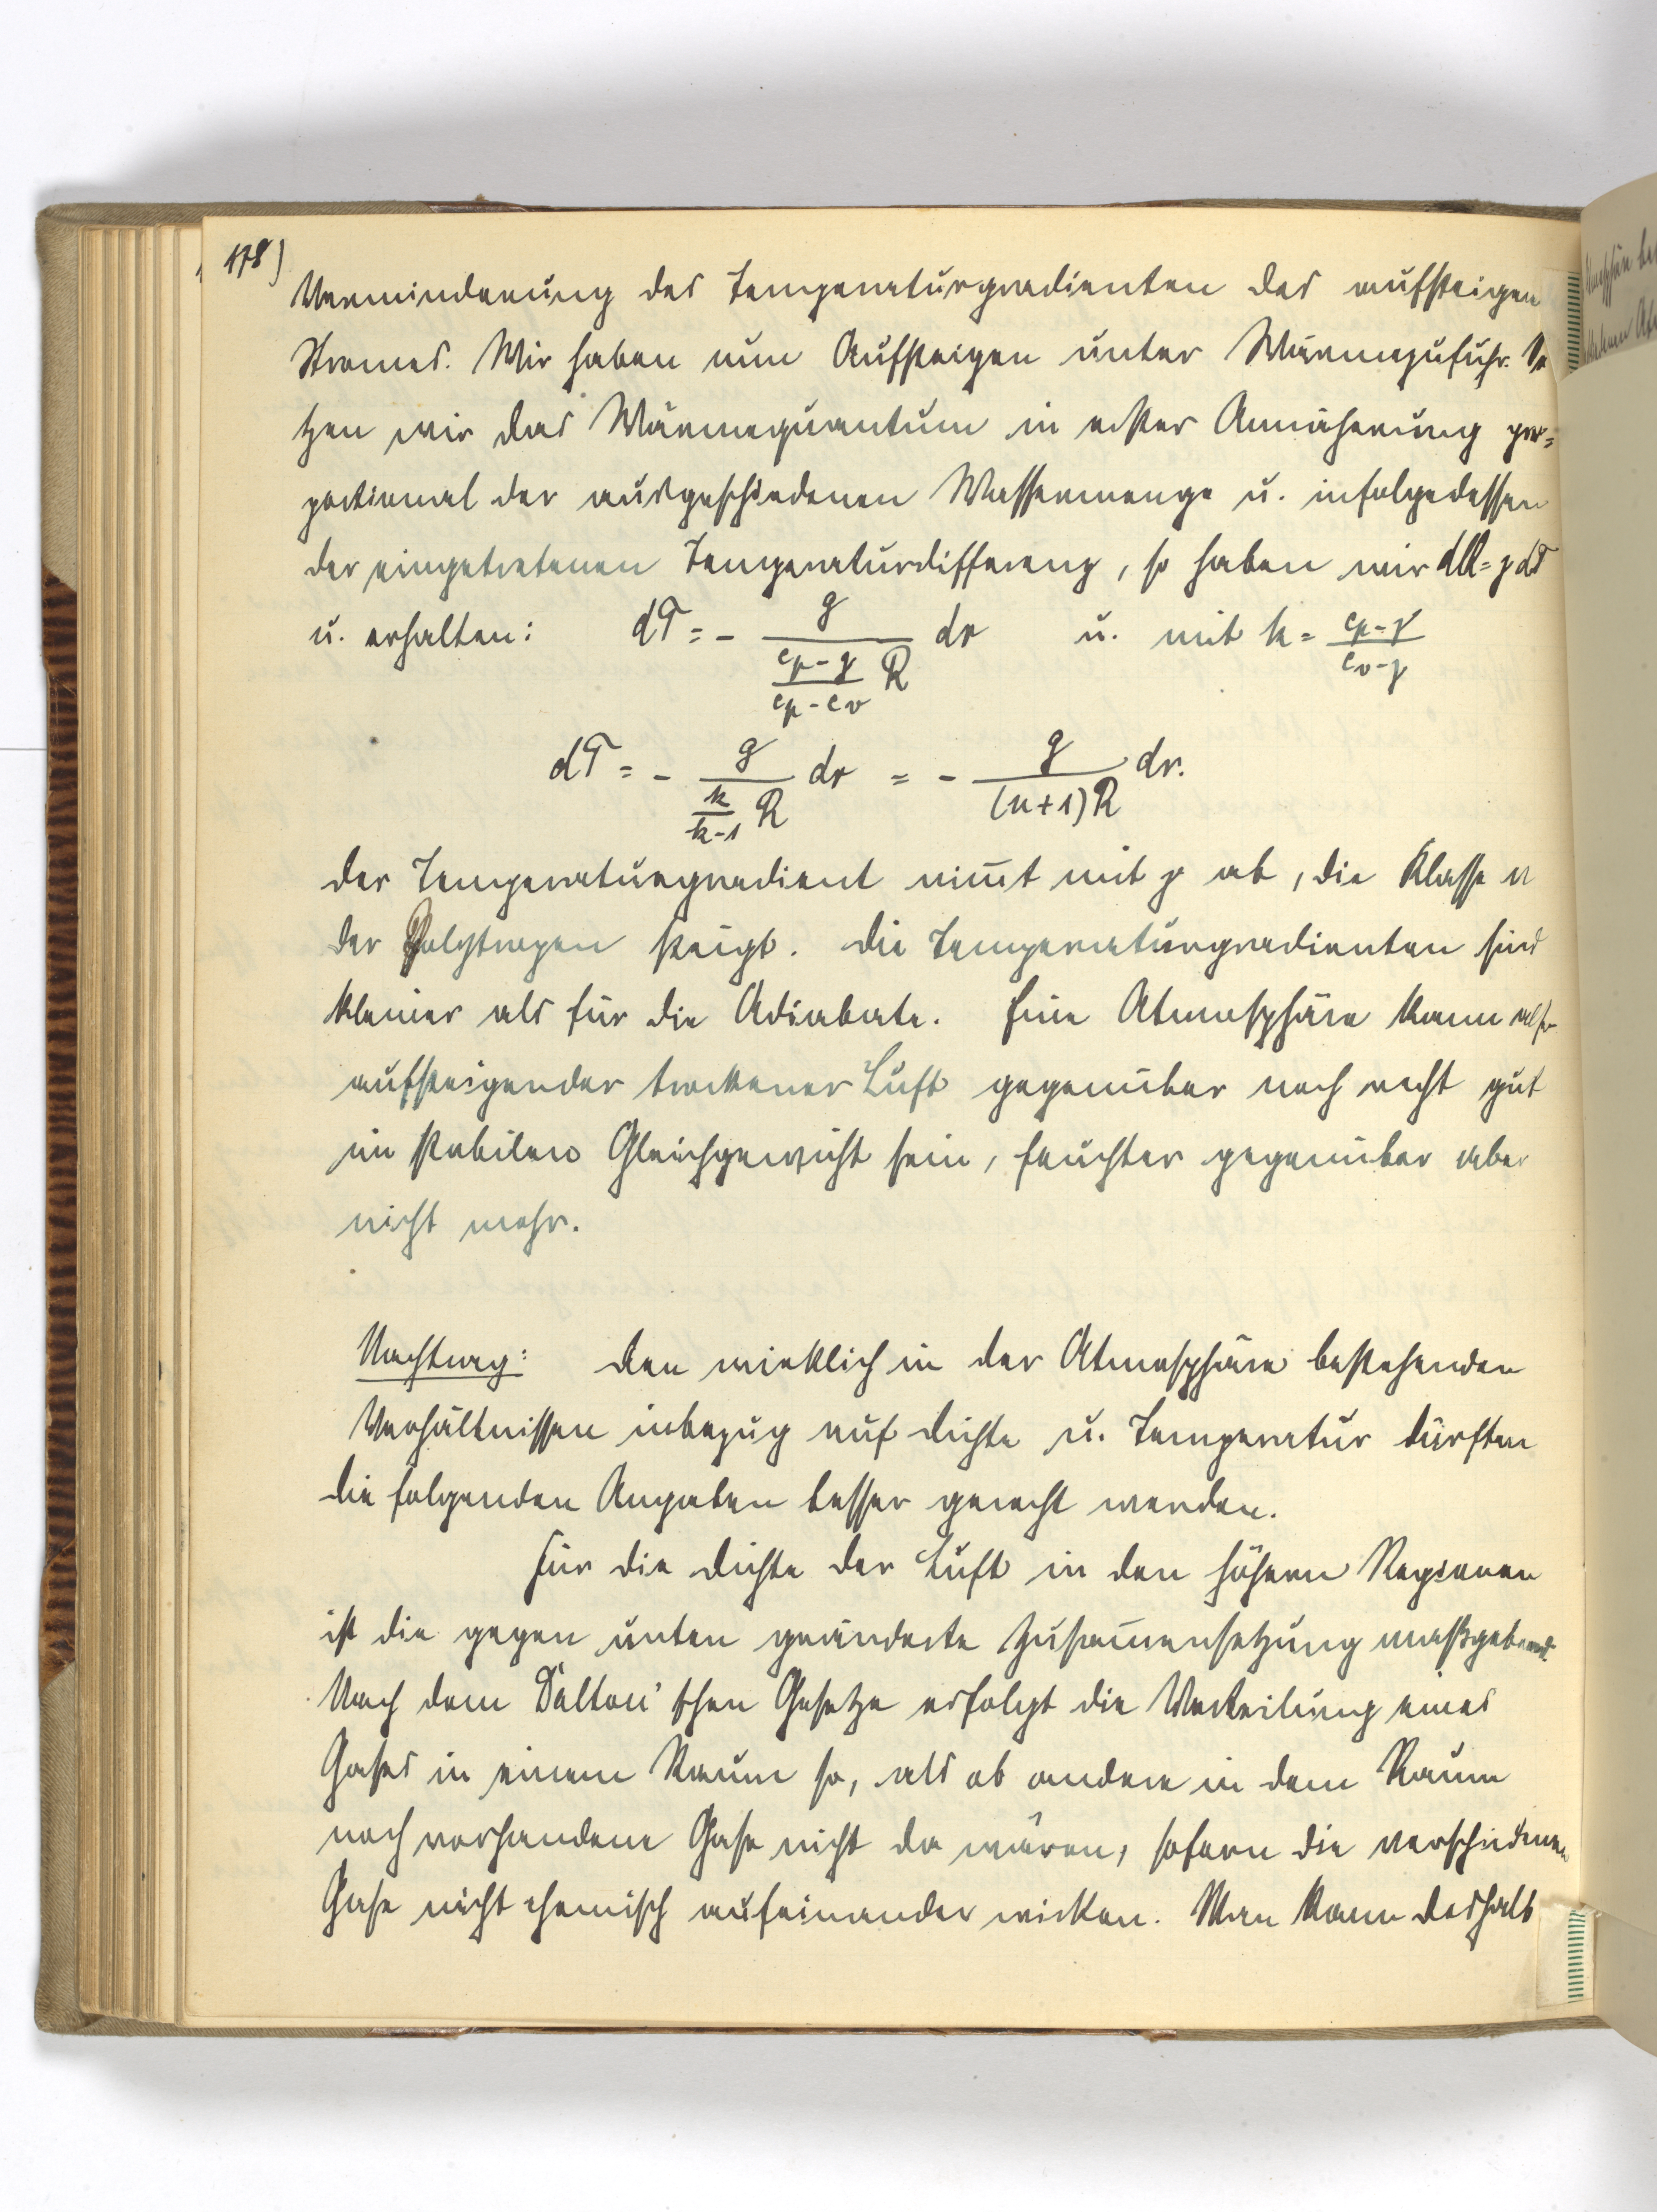 178)
Verminderung des Temperaturgradienten des aufsteigen
Stromes. Wir haben nun Aufsteigen unter Wärmezufuhr. Se
tzen wir das Wärmequantum in erster Annäherung pro=
portional der ausgeschiedenen Wassermenge u. infolgedessen
der eingetretenen Temperaturdifferenz, so haben wir dQ = γ dT
u. erhalten: dT = - g / ((cp-γ)/(cp-cv) R) dr u. mit k = (cp-γ)/(cv-γ)
dT = - g / (k/(k-1) R) dr = - g / ((n+1)R) dr.
Der Temperaturgradient nim̄t mit γ ab, die Klasse n
der Polytropen steigt. Die Temperaturgradienten sind
kleiner als für die Adiabate. Eine Atmosphäre kann also
aufsteigender trockener Luft gegenüber noch recht gut
im stabilen Gleichgewicht sein, feuchter gegenüber aber
nicht mehr.
Nachtrag: Den wirklich in der Atmosphäre bestehenden
Verhältnissen inbezug auf Dichte u. Temperatur dürften
die folgenden Angaben besser gerecht werden.
Für die Dichte der Luft in den höhern Regionen
ist die gegen unten geänderte Zusam̄ensetzung maßgebend.
Nach dem Dalton'schen Gesetze erfolgt die Verteilung eines
Gases in einem Raum so, als ob andere in dem Raum
noch vorhandene Gase nicht da wären, sofern die verschiedenen
Gase nicht chemisch aufeinander wirken. Man kann deshalb